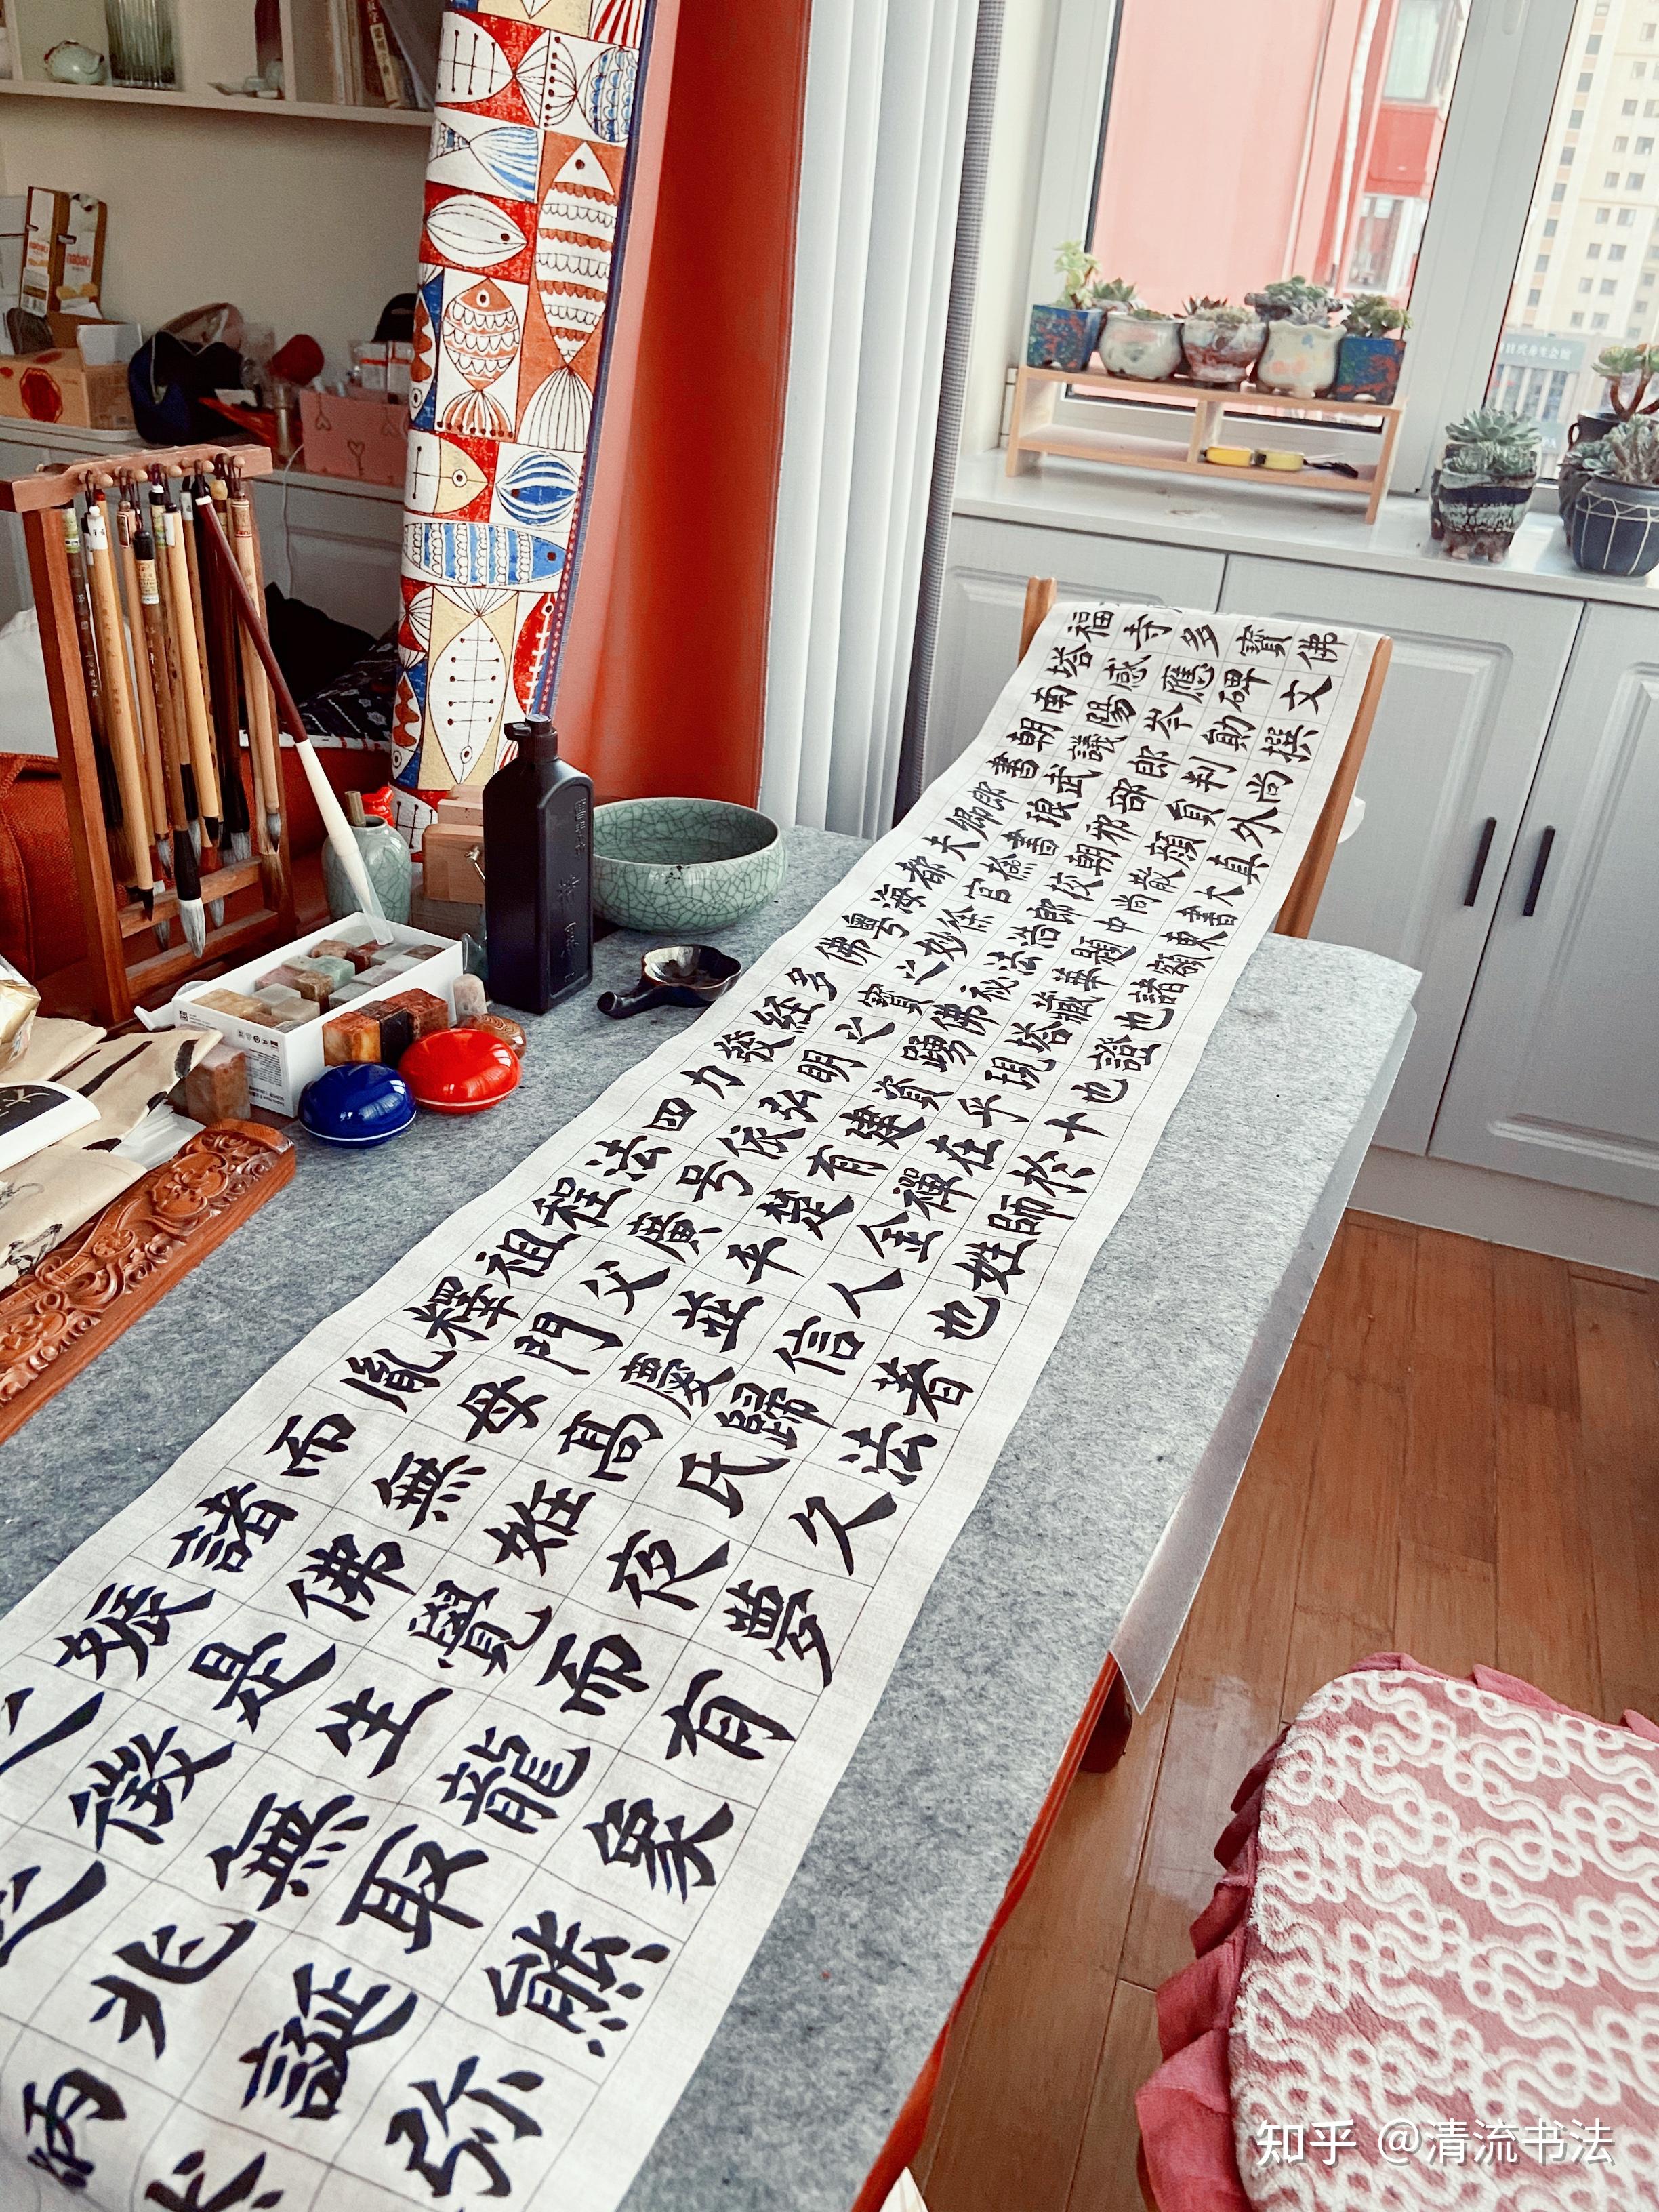 福寺多寶佛
塔感應碑文
南陽岑勛撰
朝議郎判尚
書武部員外
郎琅邪顏真
卿書朝散大
夫撿挍尚書
都官郎中東
海徐浩題額
粵妙法華諸
佛之秘藏也
多寶佛塔證
經之踊現也
發明資乎十
力弘建在於
四依有禪師
法号楚金姓
程廣平人也
祖父並信著
釋門慶歸法
胤母高氏久
而無姙夜夢
諸佛覺而有
娠是生龍象
之徵無取熊
之兆誕弥
炳
知乎 @清流书法